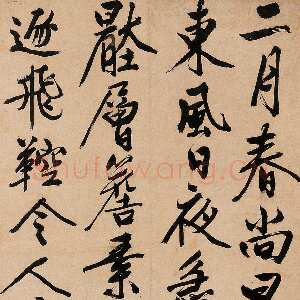 二月春尚
東風日夜急
層簷素
飛鞚令人
shufawang.cn